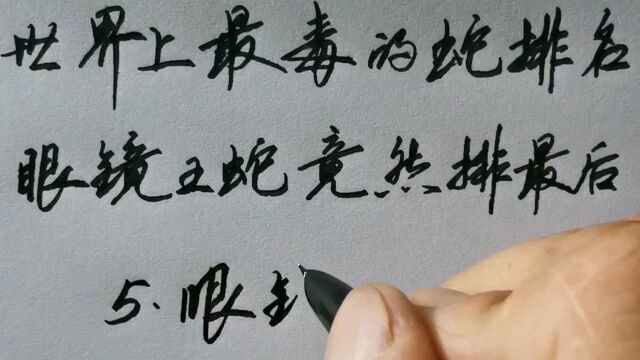 世界上最毒的蛇排名
眼镜王蛇竟然排最后
5.眼